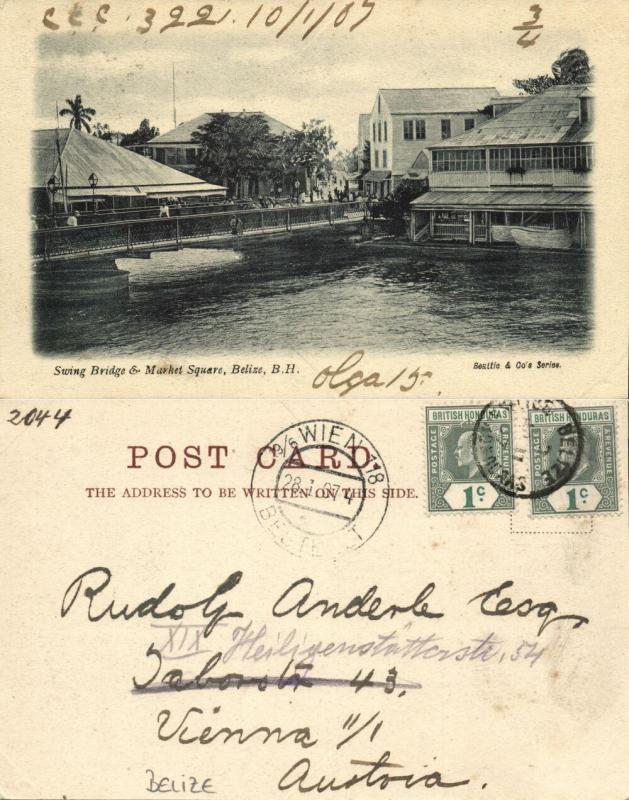 CCC 322. 10/1/07
3/4
Swing Bridge & Market Square, Belize, B.H.
Olga 15.
Beattie & Co's Series.
2044
POST CARD.
THE ADDRESS TO BE WRITTEN ON THIS SIDE.
9/5 WIEN 718
28.1.07.4
BESTELLT
BRITISH HONDURAS
POSTAGE
& REVENUE
1c
BRITISH HONDURAS
POSTAGE
& REVENUE
1c
BELIZE
Rudolf Anderle Esq,
XIX Heiligenstätterstr. 54
Taborstr 43.
Vienna II/1
Austria.
BELIZE